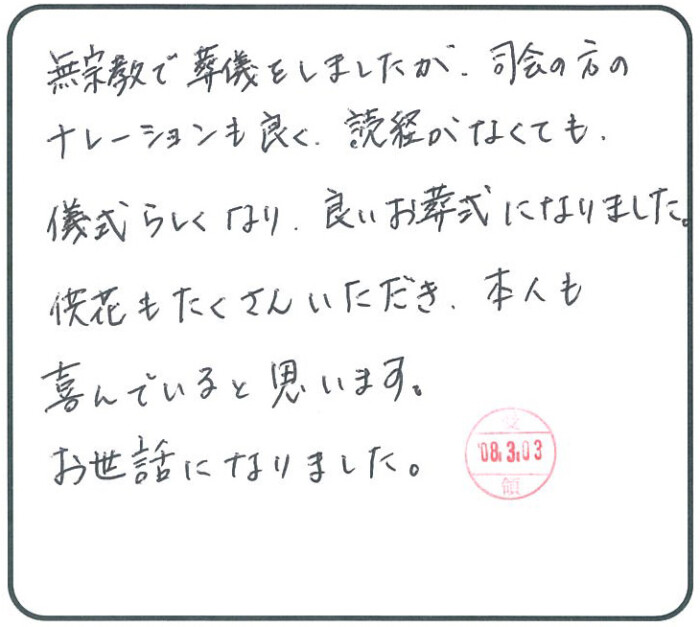 無宗教で葬儀をしましたが、司会の方の
ナレーションも良く、読経がなくても、
儀式らしくなり、良いお葬式になりました。
供花もたくさんいただき、本人も
喜んでいると思います。
お世話になりました。
受
'08.3.03
領